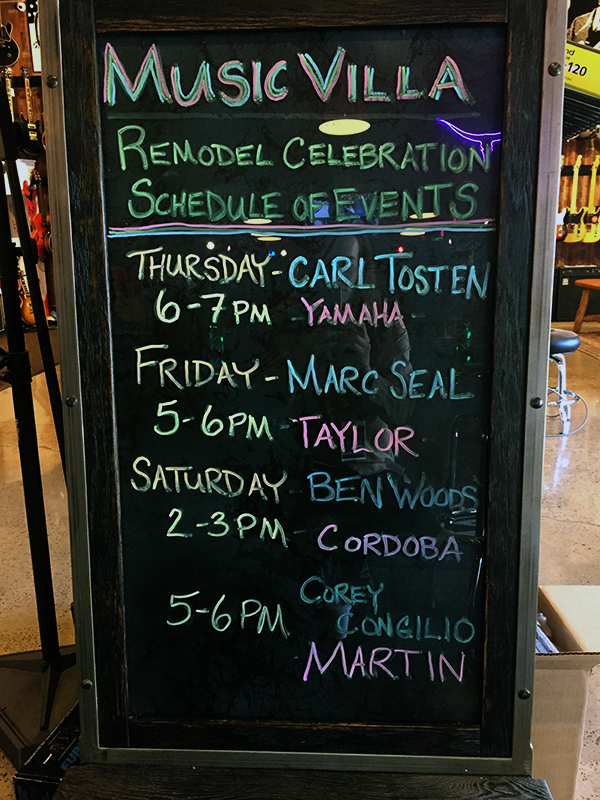 MUSIC VILLA
REMODEL CELEBRATION
SCHEDULE OF EVENTS
THURSDAY - CARL TOSTEN
6-7PM - YAMAHA -
FRIDAY - MARC SEAL
5-6PM - TAYLOR -
SATURDAY - BEN WOODS
2-3PM - CORDOBA
5-6PM COREY
CONGILIO
- MARTIN
-120